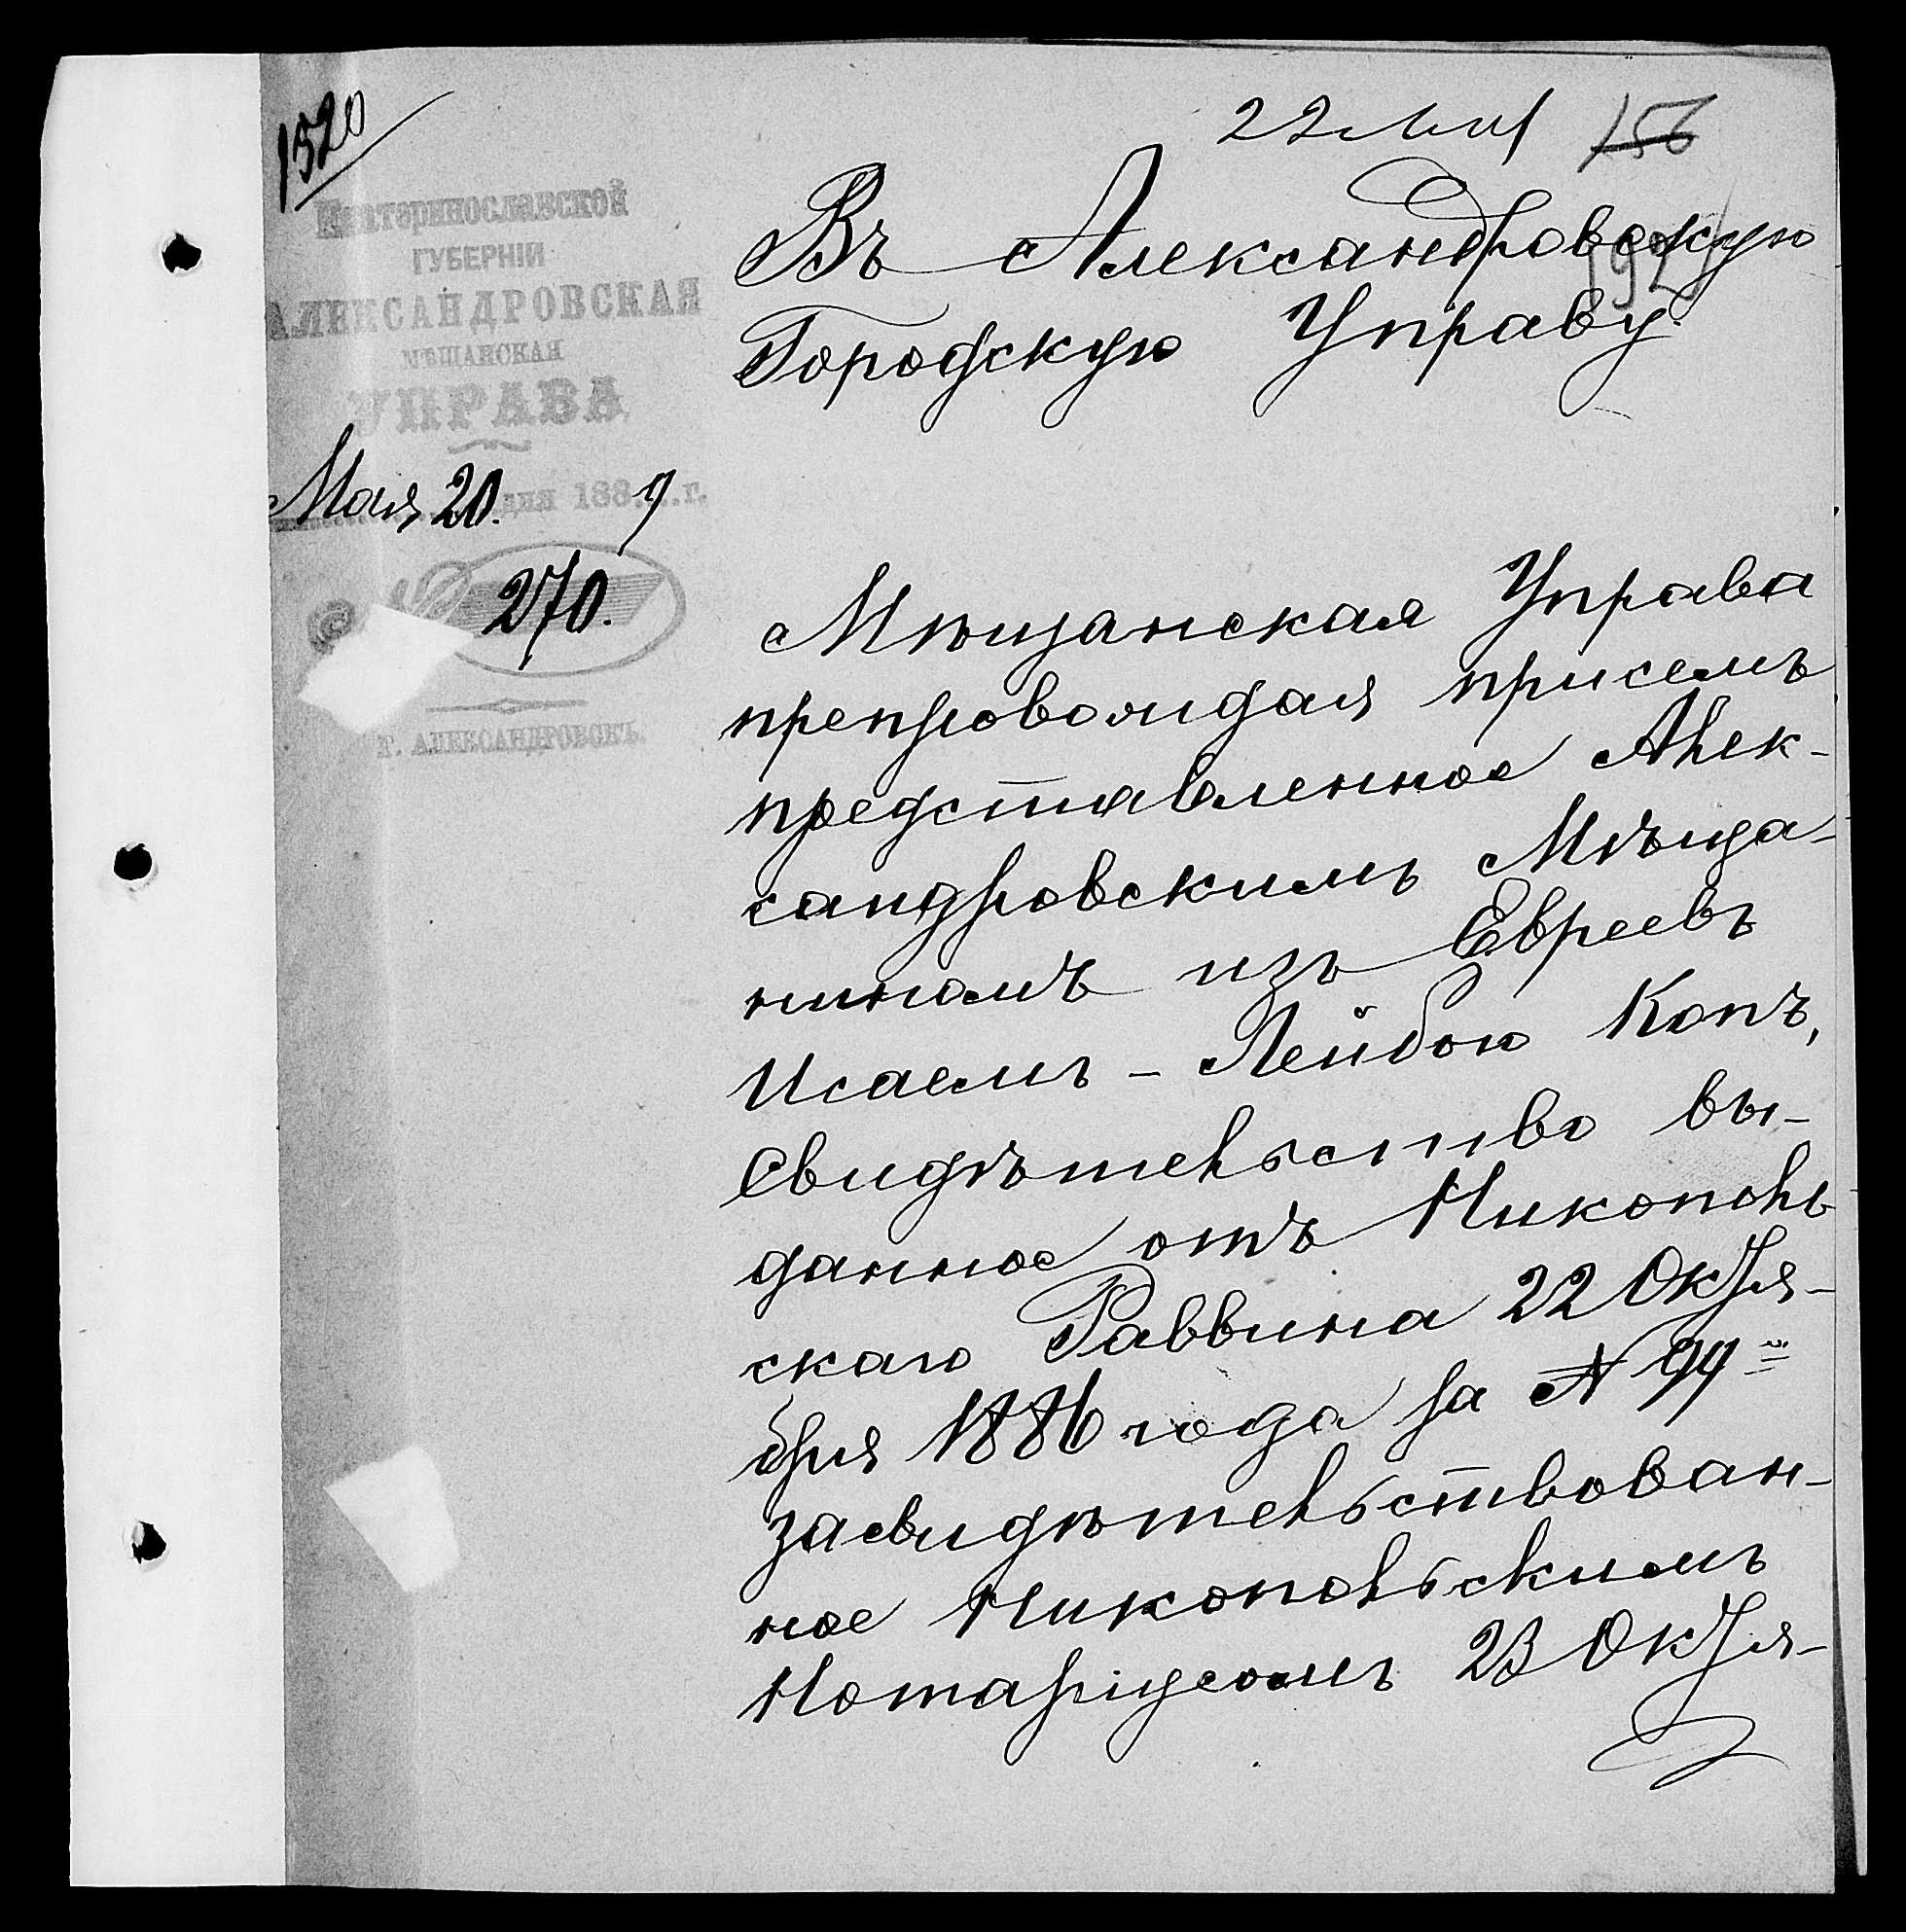 1520
22 Мая
156
192
Екатеринославской
ГУБЕРНІИ
АЛЕКСАНДРОВСКАЯ
МѢЩАНСКАЯ
УПРАВА
Мая 20. дня 188 7 г.
270.
Г. АЛЕКСАНДРОВСКЪ.
Въ Александровскую
Городскую Управу.
Мѣщанская Управа
препровождая присемъ
представленное Алек-
сандровскимъ Мѣща-
ниномъ изъ Евреевъ
Исаемъ-Лейбою Копъ,
Свидѣтельство вы-
данное отъ Никополь
скаго Раввина 22 Октя-
бря 1886 года за №
засвидѣтельствован-
ное Никопольскимъ
Нотаріусомъ 23 Октя-